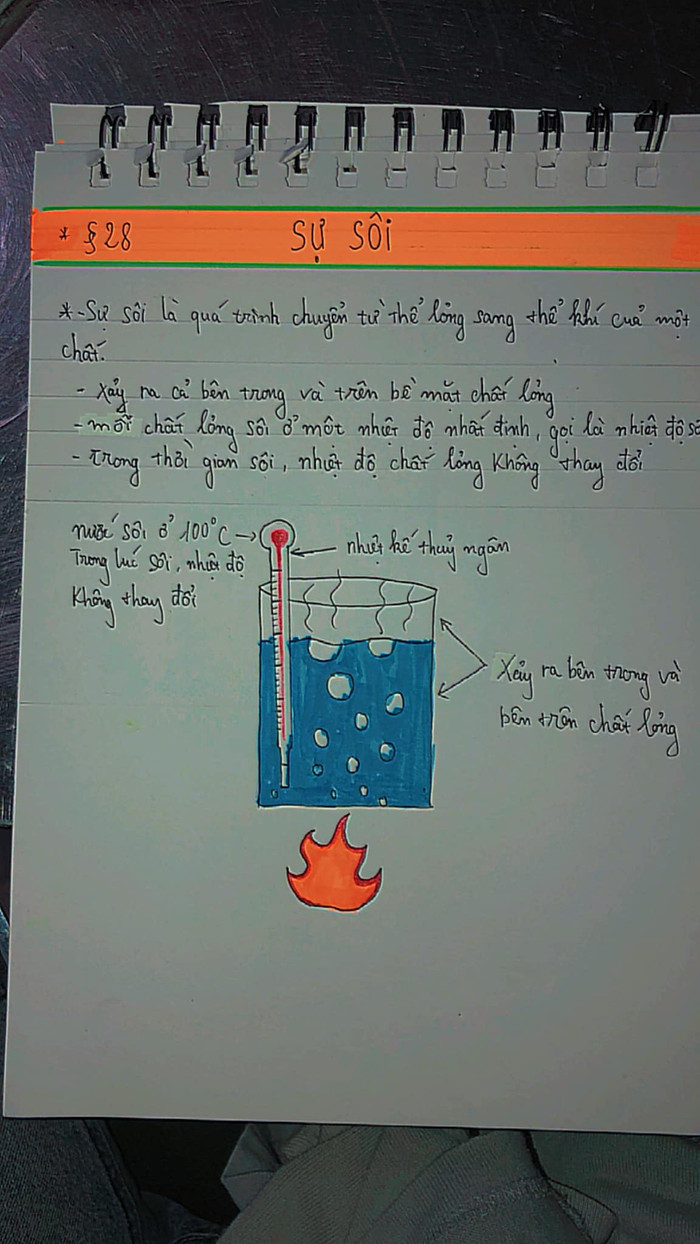 * §28 SỰ SÔI
*-Sự sôi là quá trình chuyển từ thể lỏng sang thể khí của một
chất.
- Xảy ra cả bên trong và trên bề mặt chất lỏng
- mỗi chất lỏng sôi ở một nhiệt độ nhất định, gọi là nhiệt độ sô
- Trong thời gian sôi, nhiệt độ chất lỏng không thay đổi
nước sôi ở 100°C →
Trong lúc sôi, nhiệt độ
Không thay đổi
nhiệt kế thuỷ ngân
Xảy ra bên trong và
bên trên chất lỏng